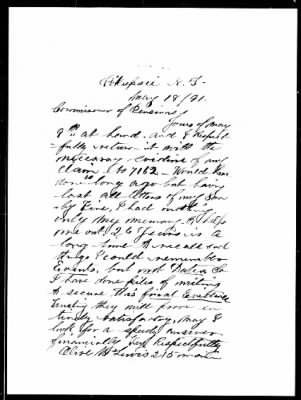 May 18/91.
Commissioner of Pensions,
Yours of May
9th at hand. and I respect-
fully return it with the
necessary evidence of my
claim. Would have
done so long ago but having
lost all letters of my son
by Fire, I had
only my memory to help
me out. 26 years is a
long time to recall such
things I could remember
Events, but not Dates. So
I have done piles of writing
to secure this Evidence
Trusting they will prove en-
tirely satisfactory, May I
look for a speedy answer
financially. Very Respectfully
Olive M. Lewis 215 main